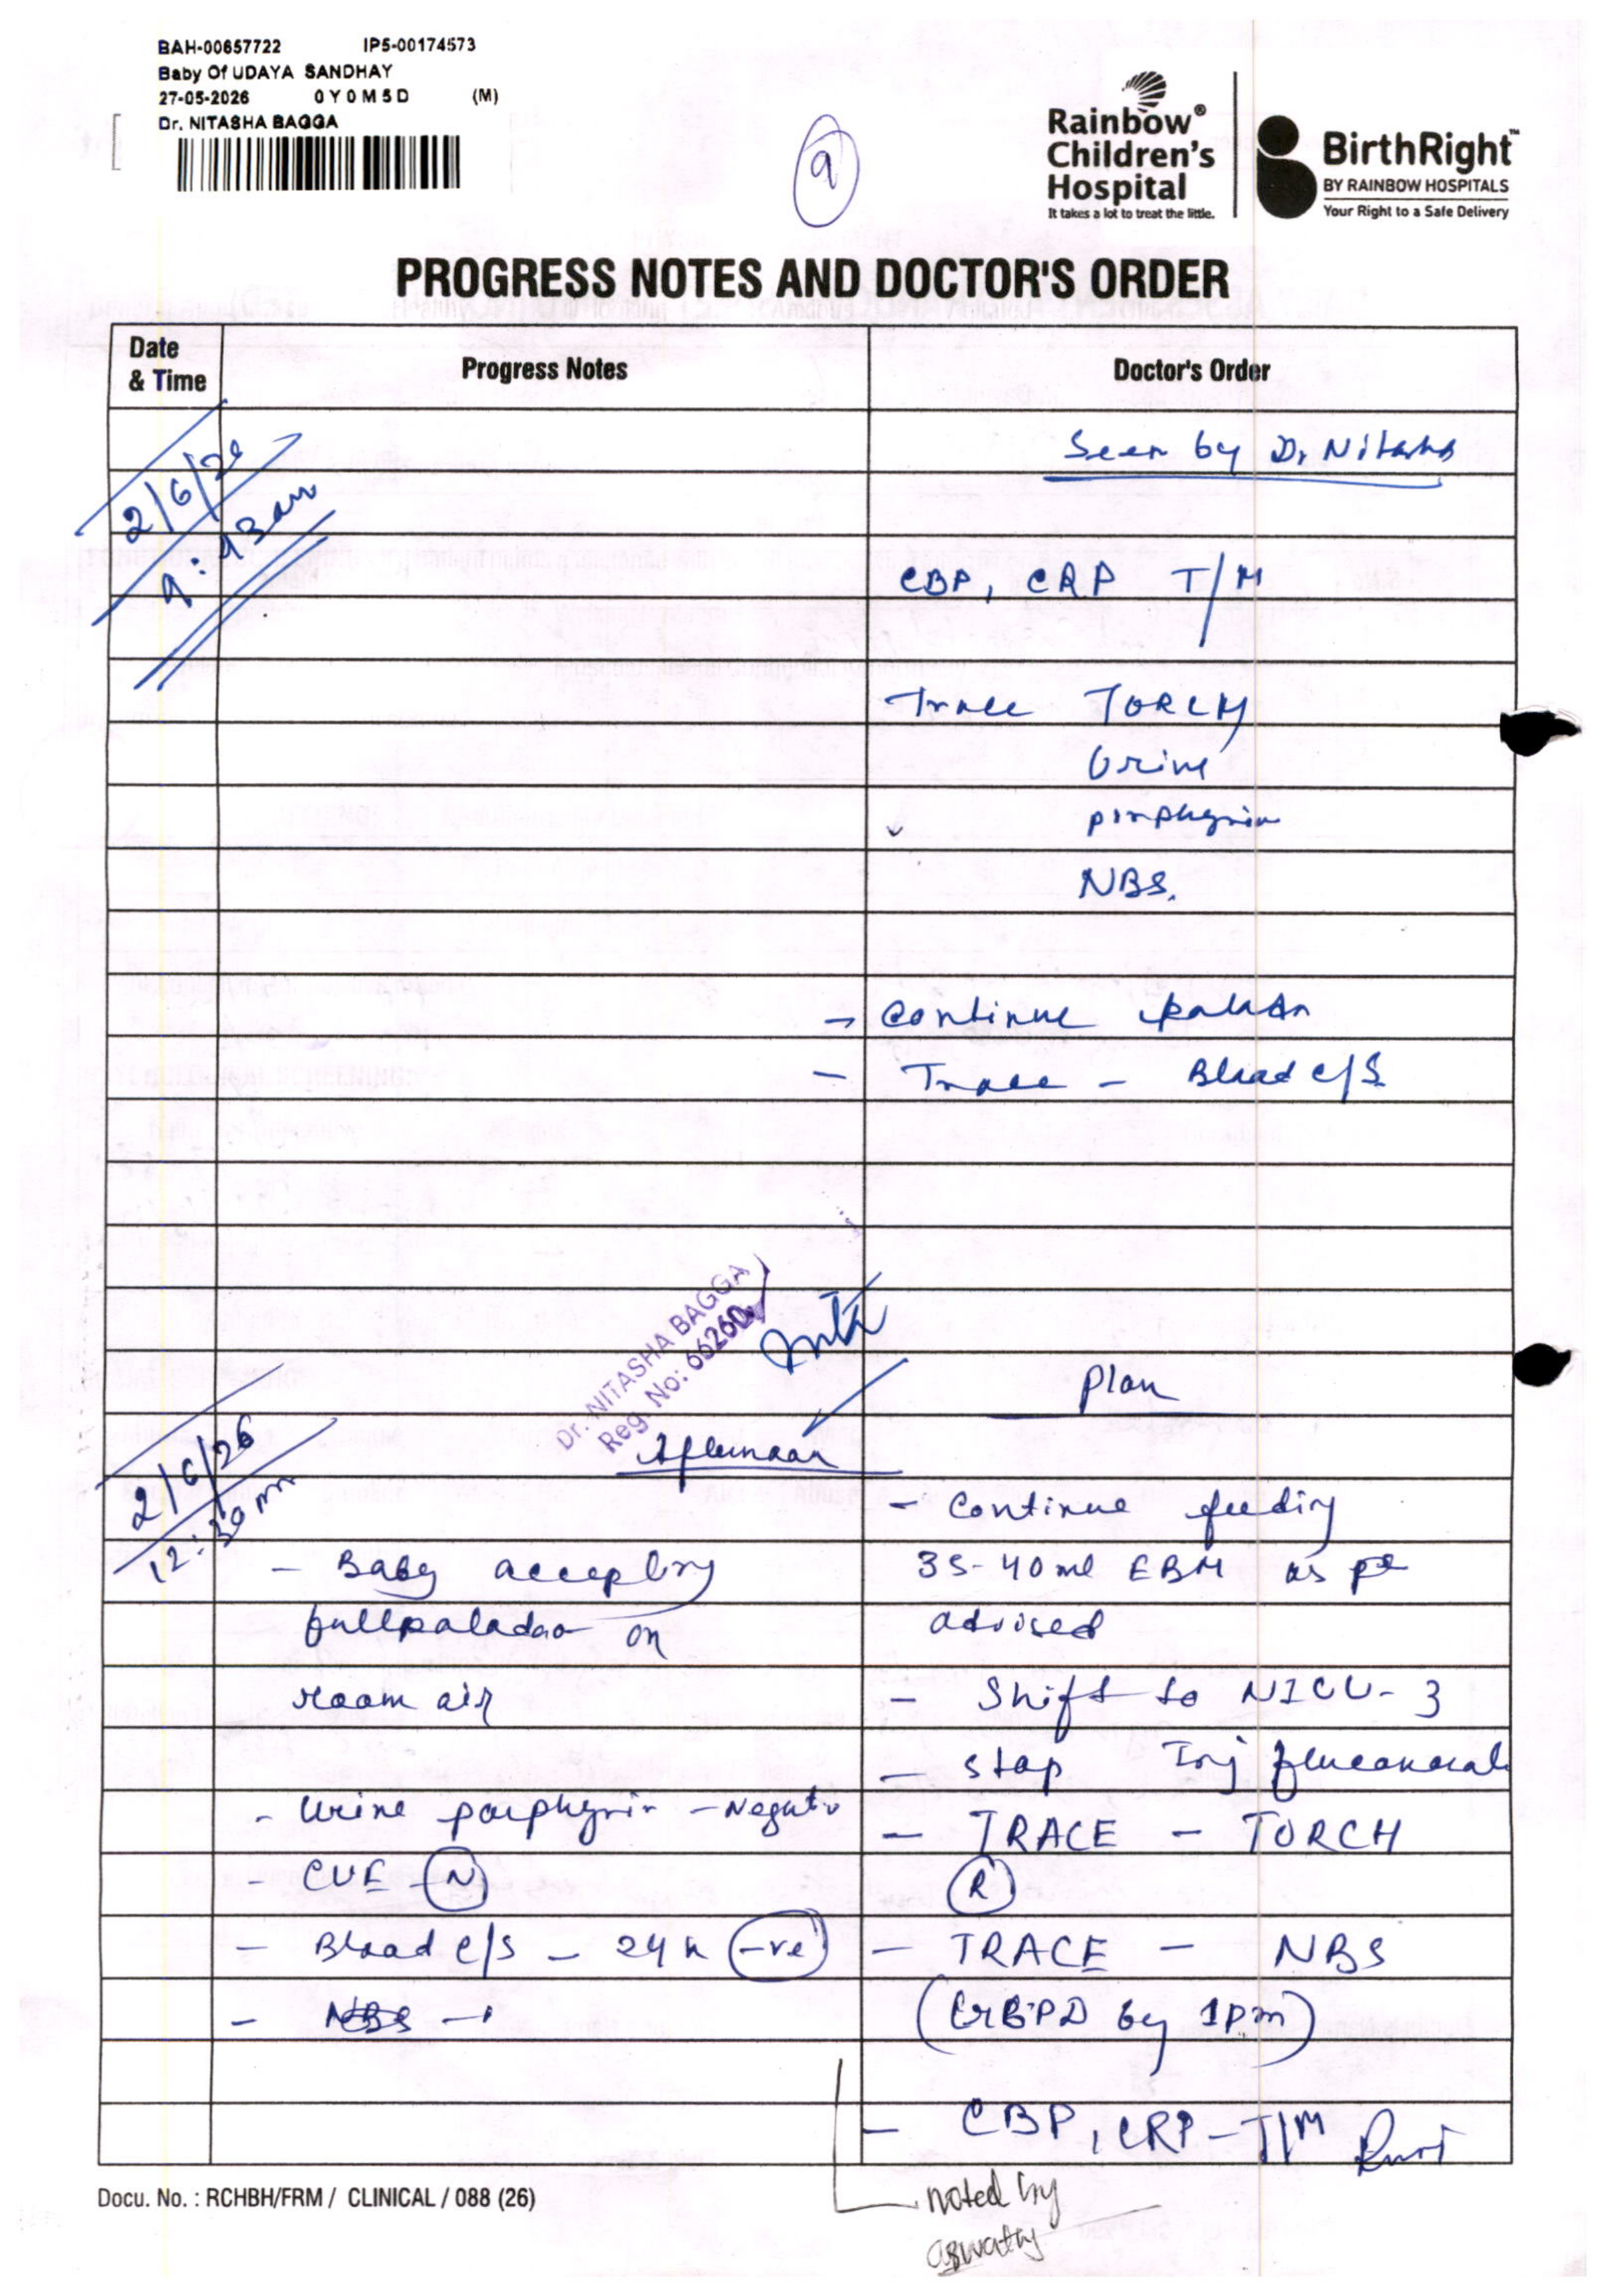 BAH-00657722 IP5-00174573
Baby Of UDAYA SANDHAY
27-05-2026 0Y0M5D (M)
Dr. NITASHA BAGGA
9
Rainbow®
Children's
Hospital
It takes a lot to treat the little.
BirthRight™
BY RAINBOW HOSPITALS
Your Right to a Safe Delivery
PROGRESS NOTES AND DOCTOR'S ORDER
Date
& Time
Progress Notes
Doctor's Order
2/6/26
Seen by Dr Nitasha
CBP, CRP T/M
Trace TORCH
Urine
porphyrin
NBS.
→ Continue
- Trace - Blood c/s
Dr. NITASHA BAGGA
Reg. No: 66260
Plan
2/6/26
12:30 pm
Afternoon
- Continue feeding
- Baby accepting
35-40ml EBM as per
full paladaa on
advised
room air
- Shift to NICU-3
- Stop Inj fluconazole
- Urine porphyrin - Negativ
- TRACE - TORCH
- CUE - N
R
- Blood c/s - 24h -ve
- TRACE - NBS
- NBS -
by 1pm)
- CBP, CRP - T/M
Docu. No. : RCHBH/FRM / CLINICAL / 088 (26)
noted by
aswathy